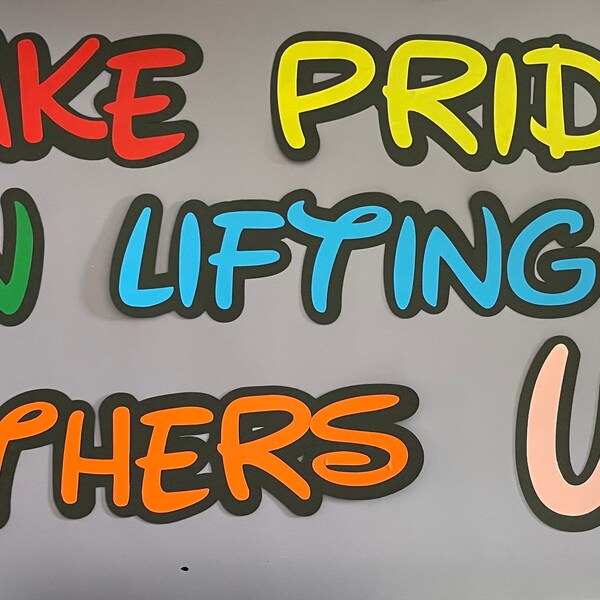 AKE PRID
N LIFTING
THERS U